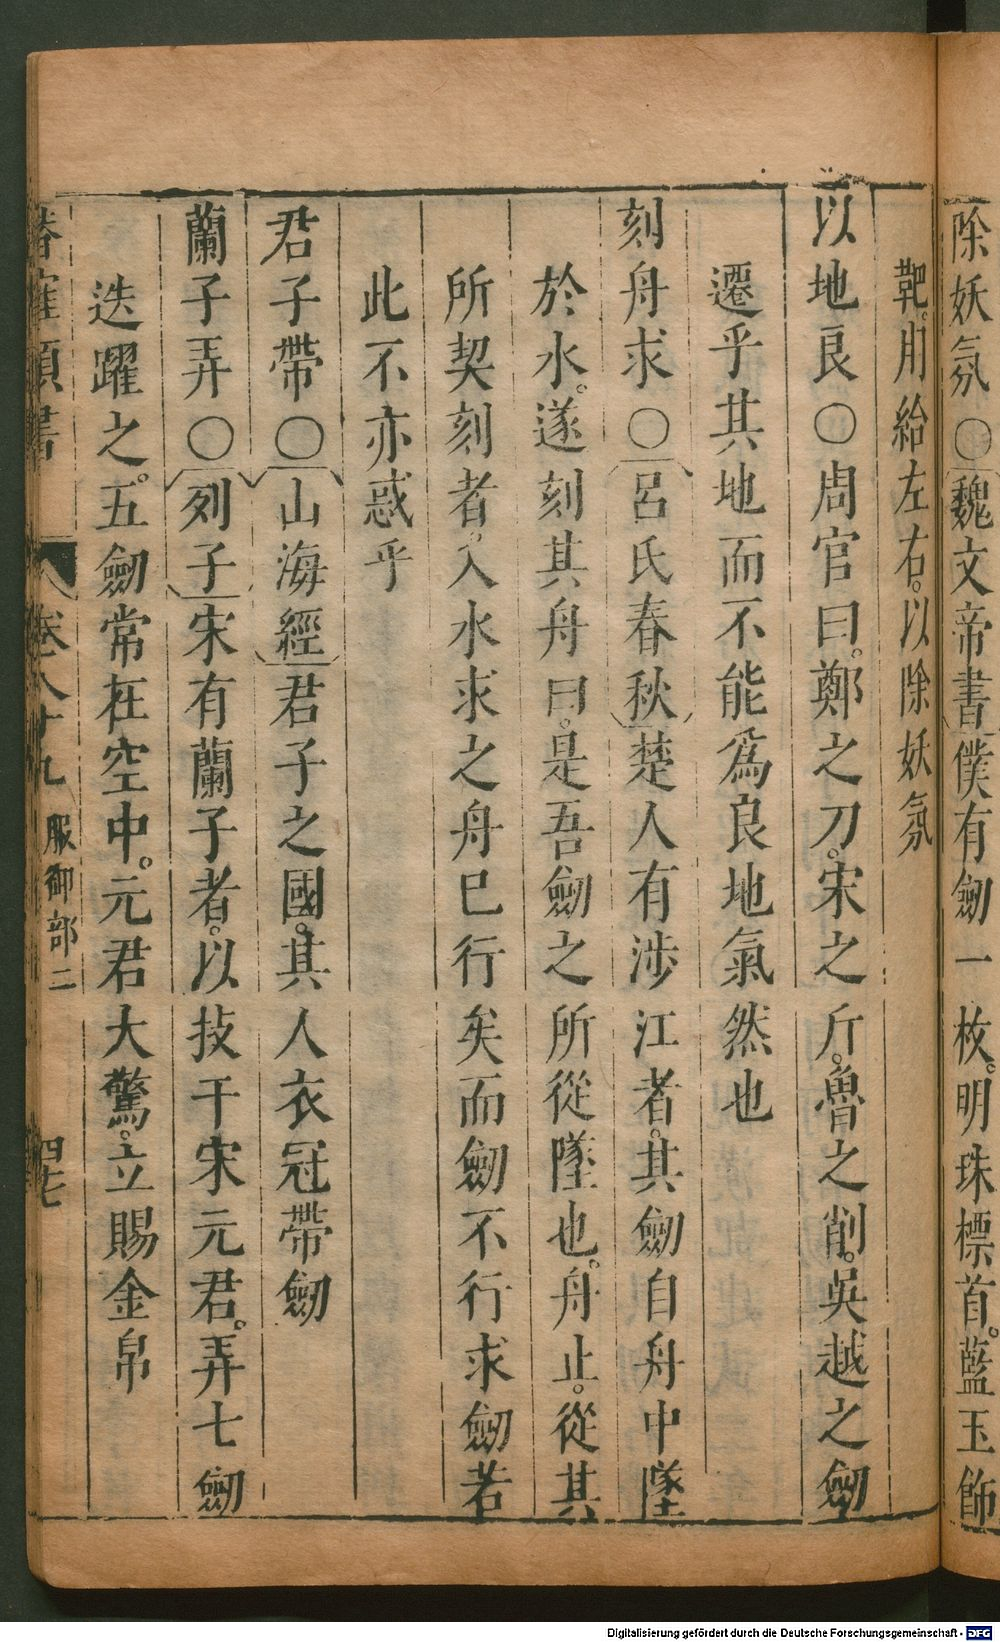 除妖氛○魏文帝書僕有劒一枚。明珠標首。藍玉飾
靶。用給左右。以除妖氛
以地良○周官曰。鄭之刀。宋之斤。魯之削。吳越之劒
遷乎其地而不能爲良地氣然也
刻舟求○呂氏春秋楚人有涉江者。其劒自舟中墜
於水。遂刻其舟曰。是吾劒之所從墜也。舟止。從其
所契刻者。入水求之舟巳行矣而劒不行求劒若
此不亦惑乎
君子帶○山海經君子之國。其人衣冠帶劒
蘭子弄○列子宋有蘭子者。以技干宋元君。弄七劒
迭躍之。五劒常在空中。元君大驚。立賜金帛
類書 卷八十九 服御部二 四七
Digitalisierung gefördert durch die Deutsche Forschungsgemeinschaft - DFG